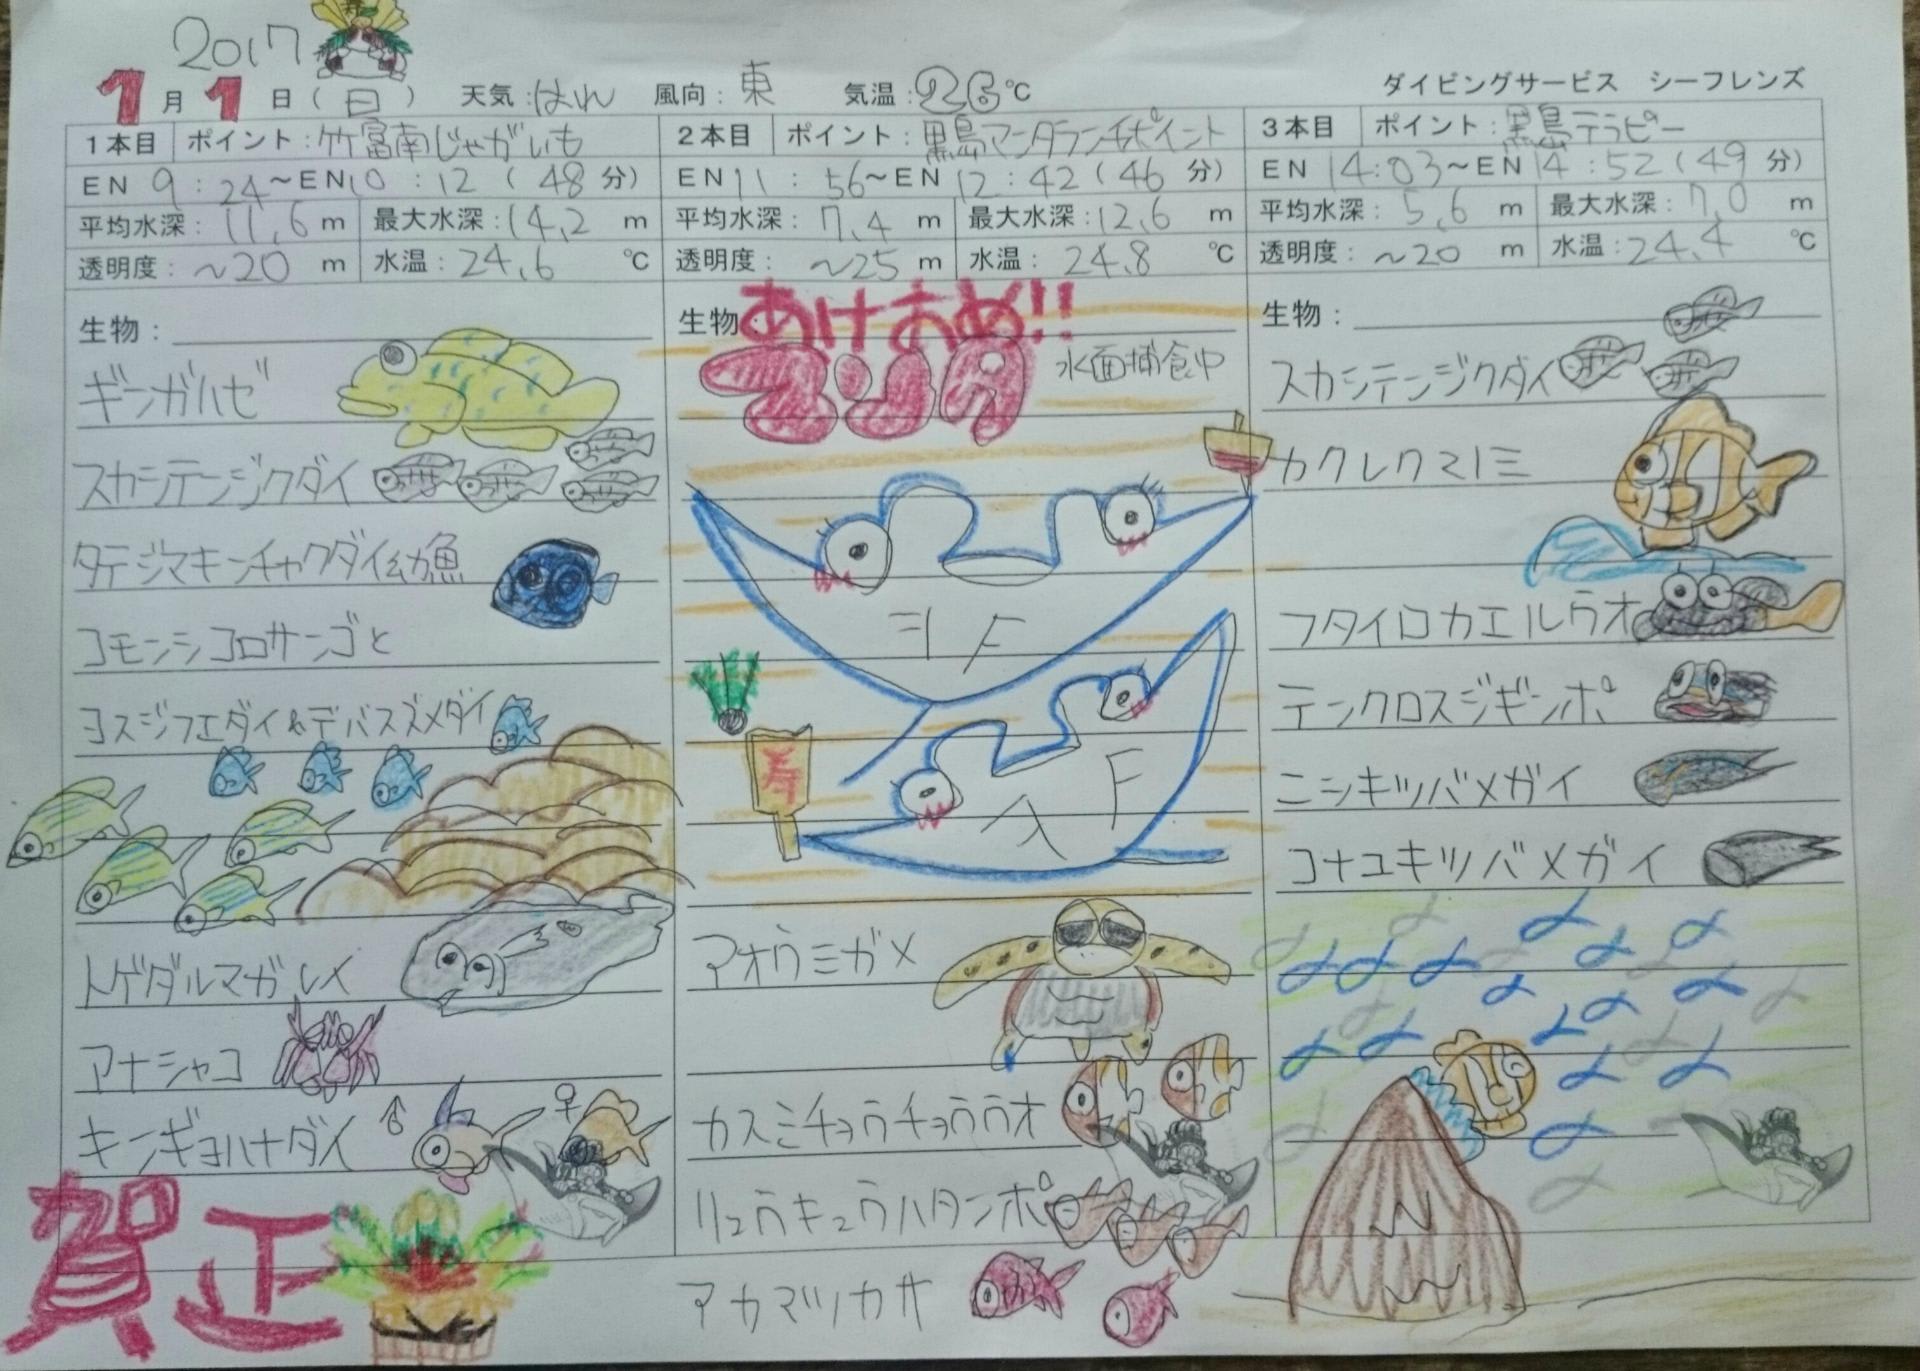 2017
1月1日(日) 天気:はれ 風向:東 気温:26℃ ダイビングサービス シーフレンズ
1本目 ポイント:竹富南じゃがいも
EN 9:24~EN10:12(48分)
平均水深:11,6m 最大水深:14,2m
透明度:~20m 水温:24,6℃
生物:
ギンガハゼ
スカシテンジクダイ
タテジマキンチャクダイ幼魚
コモンシコロサンゴと
ヨスジフエダイ&デバスズメダイ
トゲダルマガレイ
アナシャコ
キンギョハナダイ ♂ ♀
賀正
2本目 ポイント:黒島マンタランチポイント
EN11:56~EN12:42(46分)
平均水深:7,4m 最大水深:12,6m
透明度:~25m 水温:24,8℃
生物
あけおめ!!
マンタ 水面捕食中
寿
アオウミガメ
カスミチョウチョウウオ
リュウキュウハタンポ
アカマツカサ
3本目 ポイント:黒島テラピー
EN 14:03~EN 14:52(49分)
平均水深:5,6m 最大水深:7,0m
透明度:~20m 水温:24,4℃
生物:
スカシテンジクダイ
カクレクマノミ
フタイロカエルウオ
テンクロスジギンポ
ニシキツバメガイ
コナユキツバメガイ